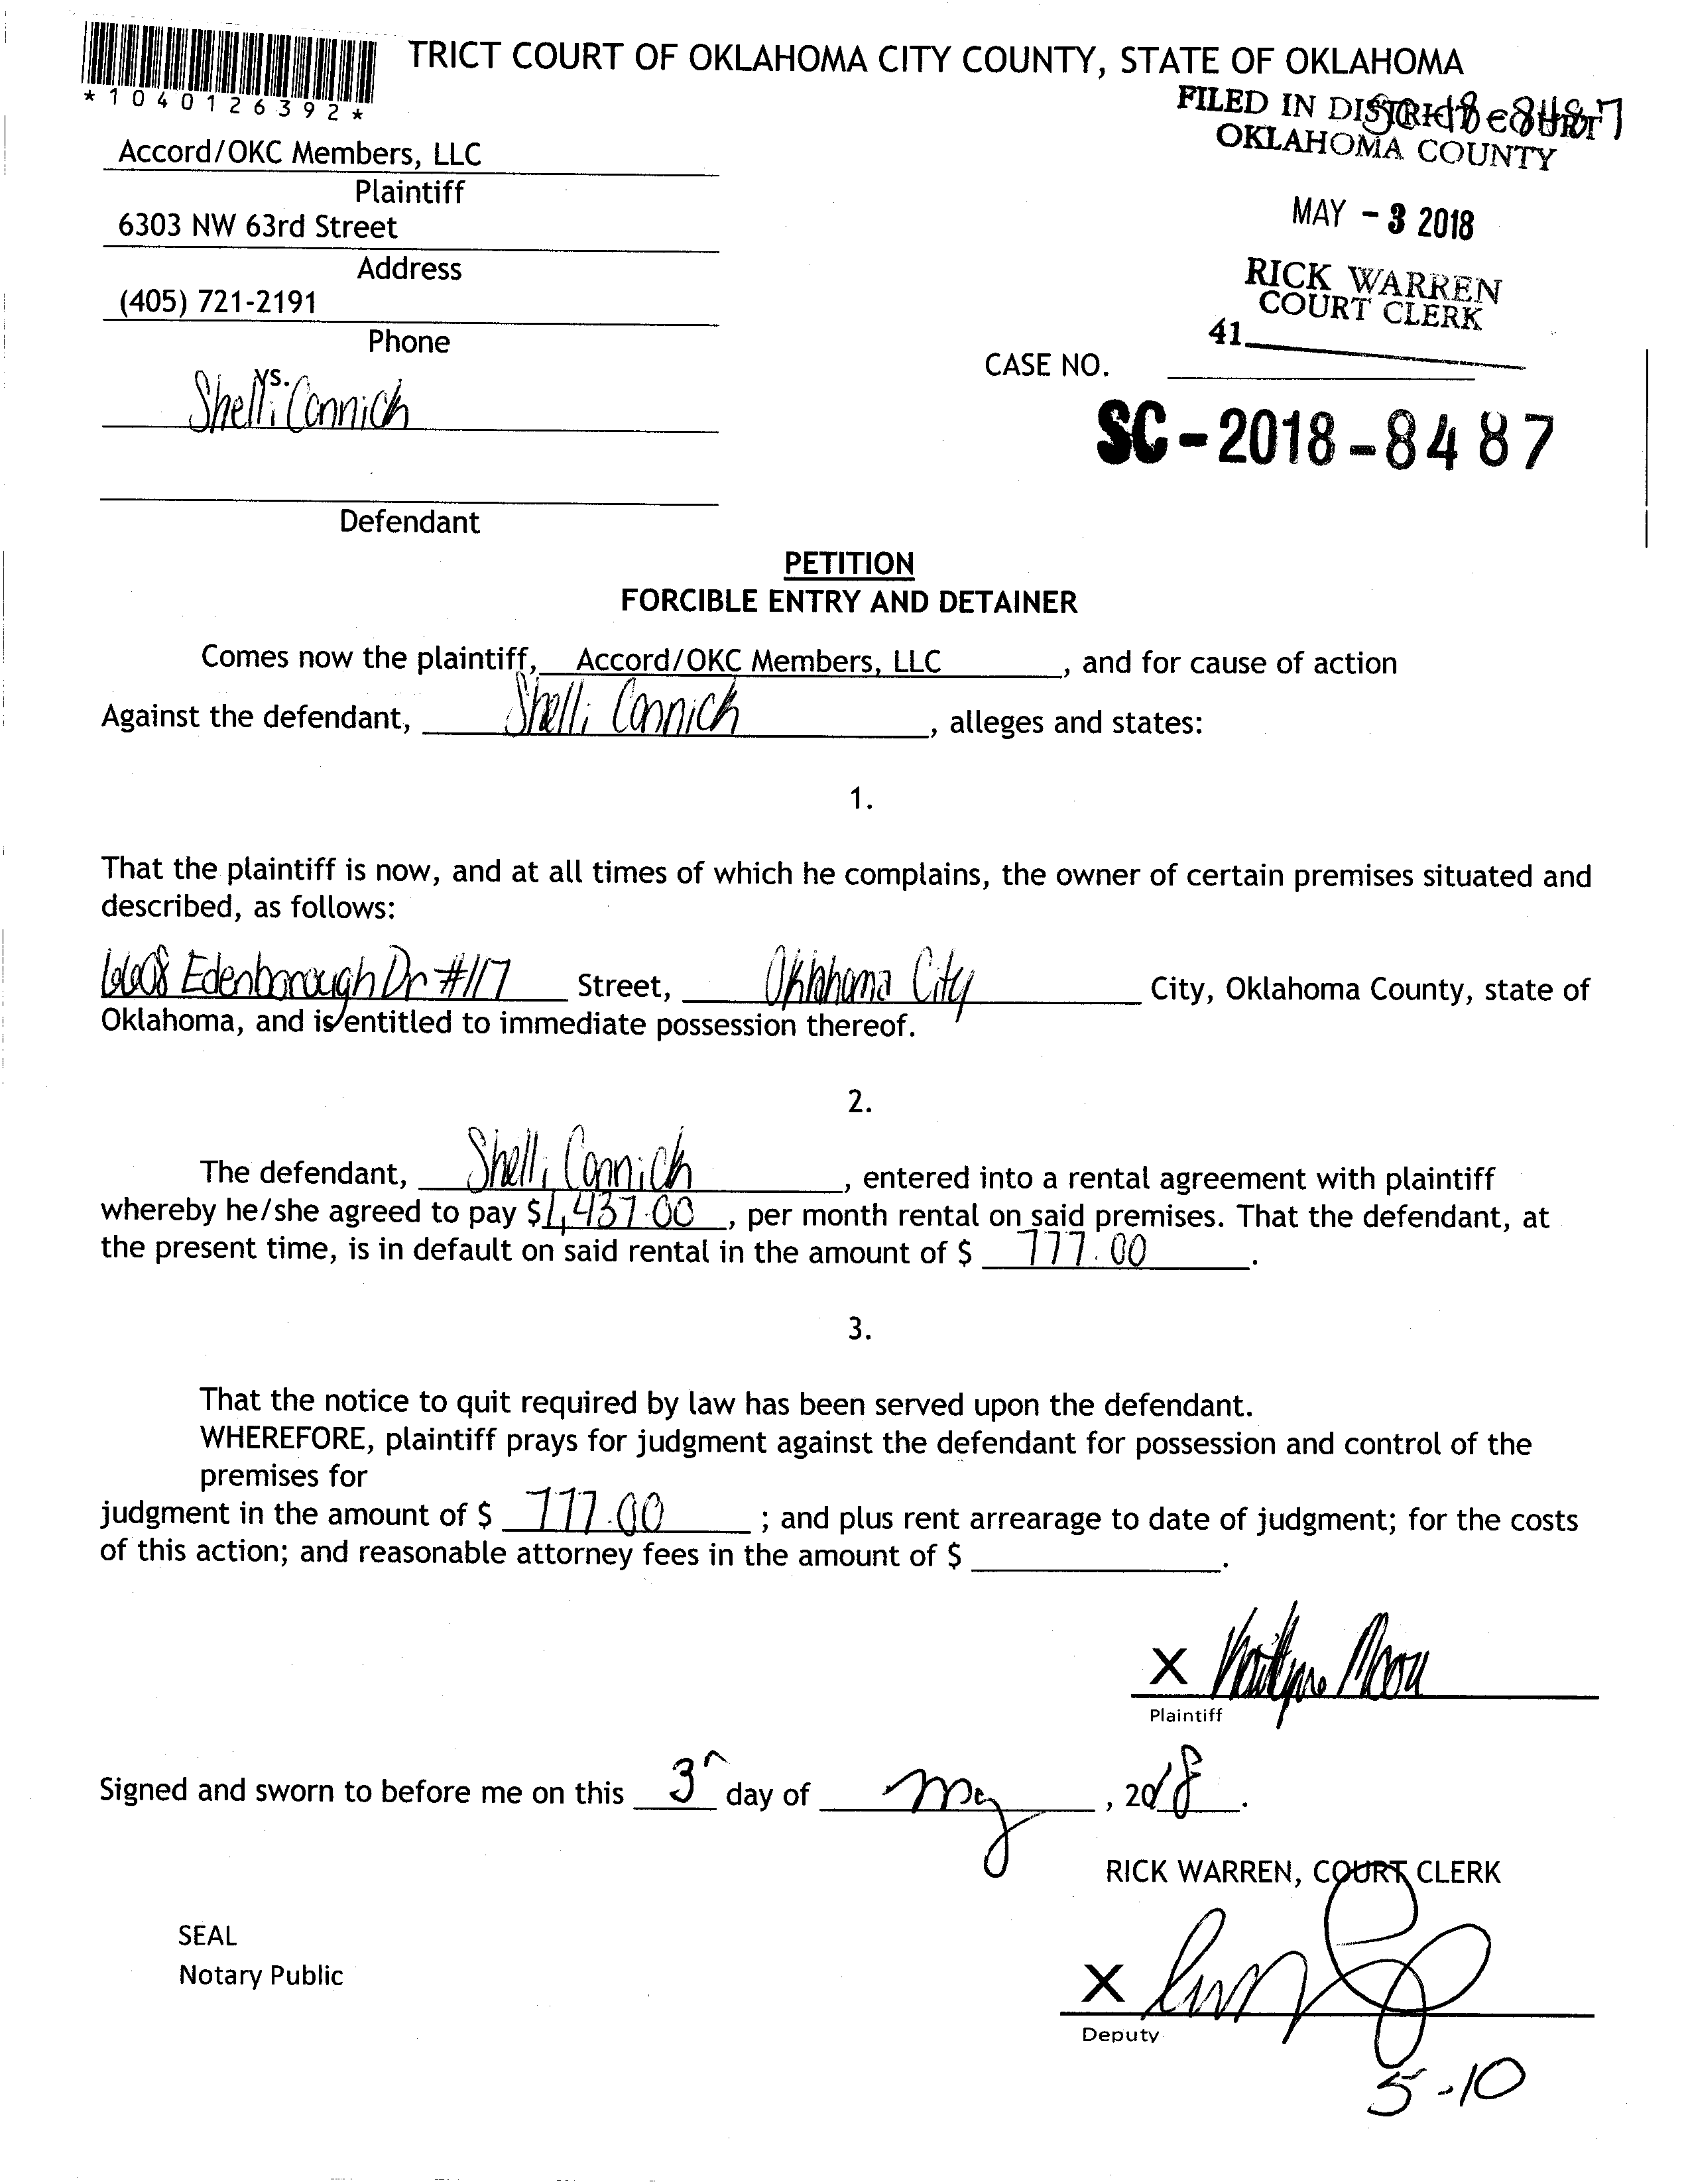 TRICT COURT OF OKLAHOMA CITY COUNTY, STATE OF OKLAHOMA
*1040126392*
FILED IN DISTRICT COURT
SC-18-8487
OKLAHOMA COUNTY
Accord/OKC Members, LLC
Plaintiff
6303 NW 63rd Street
Address
(405) 721-2191
Phone
MAY - 3 2018
RICK WARREN
COURT CLERK
41
CASE NO.
vs.
Shelli Connich
SC-2018-8487
Defendant
PETITION
FORCIBLE ENTRY AND DETAINER
Comes now the plaintiff, Accord/OKC Members, LLC, and for cause of action
Against the defendant, Shelli Connich, alleges and states:
1.
That the plaintiff is now, and at all times of which he complains, the owner of certain premises situated and
described, as follows:
6608 Edenborough Dr #117 Street, Oklahoma City City, Oklahoma County, state of
Oklahoma, and is entitled to immediate possession thereof.
2.
The defendant, Shelli Connich, entered into a rental agreement with plaintiff
whereby he/she agreed to pay $1,437.00, per month rental on said premises. That the defendant, at
the present time, is in default on said rental in the amount of $ 777.00.
3.
That the notice to quit required by law has been served upon the defendant.
WHEREFORE, plaintiff prays for judgment against the defendant for possession and control of the
premises for
judgment in the amount of $ 777.00; and plus rent arrearage to date of judgment; for the costs
of this action; and reasonable attorney fees in the amount of $
X
Plaintiff
Signed and sworn to before me on this 3 day of May, 2018.
RICK WARREN, COURT CLERK
SEAL
Notary Public
X
Deputy
5-10